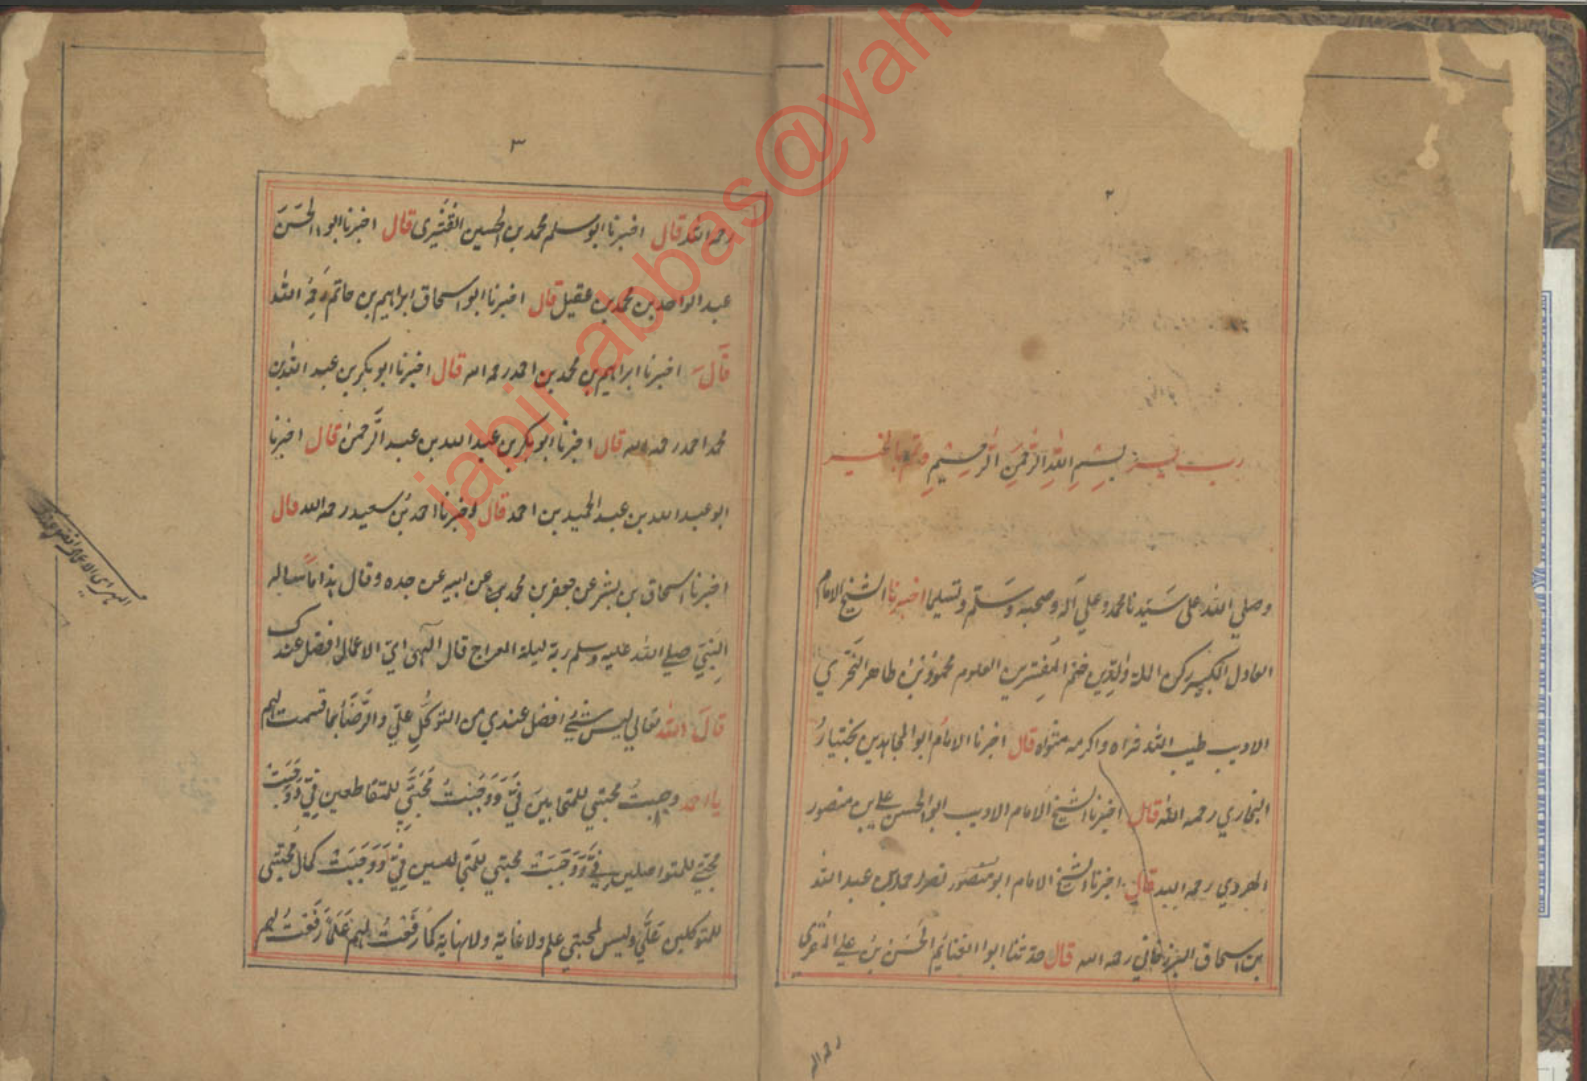 ٢
رب يسر بسم الله الرحمن الرحيم وتمم بالخير
وصلي الله على سيدنا محمد وعلي آله وصحبه وسلم وتسليما اخبرنا الشيخ الامام
العادل الكبير ركن الملة والدين المفسرين العلوم محمود بن طاهر
الاديب طيب الله ثراه واكرمه مثواه قال اخبرنا الامام ابو المجاهدين بختيار
البخاري رحمه الله قال اخبرنا الشيخ الامام الاديب ابو الحسن علي بن منصور
الهروي رحمه الله قال اخبرنا الشيخ الامام ابو منصور عبد الله
بن اسحاق رحمه الله قال حدثنا ابوا الغنايم الحسن بن علي المقري
رحمه الله
٣
رحمه الله قال اخبرنا ابو سلم محمد بن الحسين القشيري قال اخبرنا ابوا الحسن
عبد الواحد بن محمد بن عقيل قال اخبرنا ابو اسحاق ابراهيم بن حاتم رحمة الله
قال اخبرنا ابراهيم بن محمد بن احمد رحمه الله قال اخبرنا ابو بكر بن عبد الله بن
محمد احمد رحمه الله قال اخبرنا ابو بكر بن عبد الله بن عبد الرحمن قال اخبرنا
ابو عبد الله بن عبد الحميد بن احمد قال اخبرنا احمد بن سعيد رحمه الله قال
اخبرنا اسحاق بن بشر عن جعفر بن محمد عن ابيه عن جده وقال هذا ما سال
النبي صلي الله عليه وسلم ربه ليلة المعراج قال الهى اي الاعمال افضل عندك
قال الله تعالي ليس شئ افضل عندي من التوكل علي والرضا بما قسمت لهم
يا احمد وجبت محبتي للمتحابين في ووجبت محبتي للمتقاطعين في ووجبت
محبتي للمتواصلين في ووجبت محبتي للمتجالسين في ووجبت كمال محبتى
للمتوكلين علي وليس لمحبتي علم ولا غاية ولا نهاية كما رفعت لهم علما رفعت لهم
الهى اي الاعمال افضل عندك
jabir.abbas@yaho